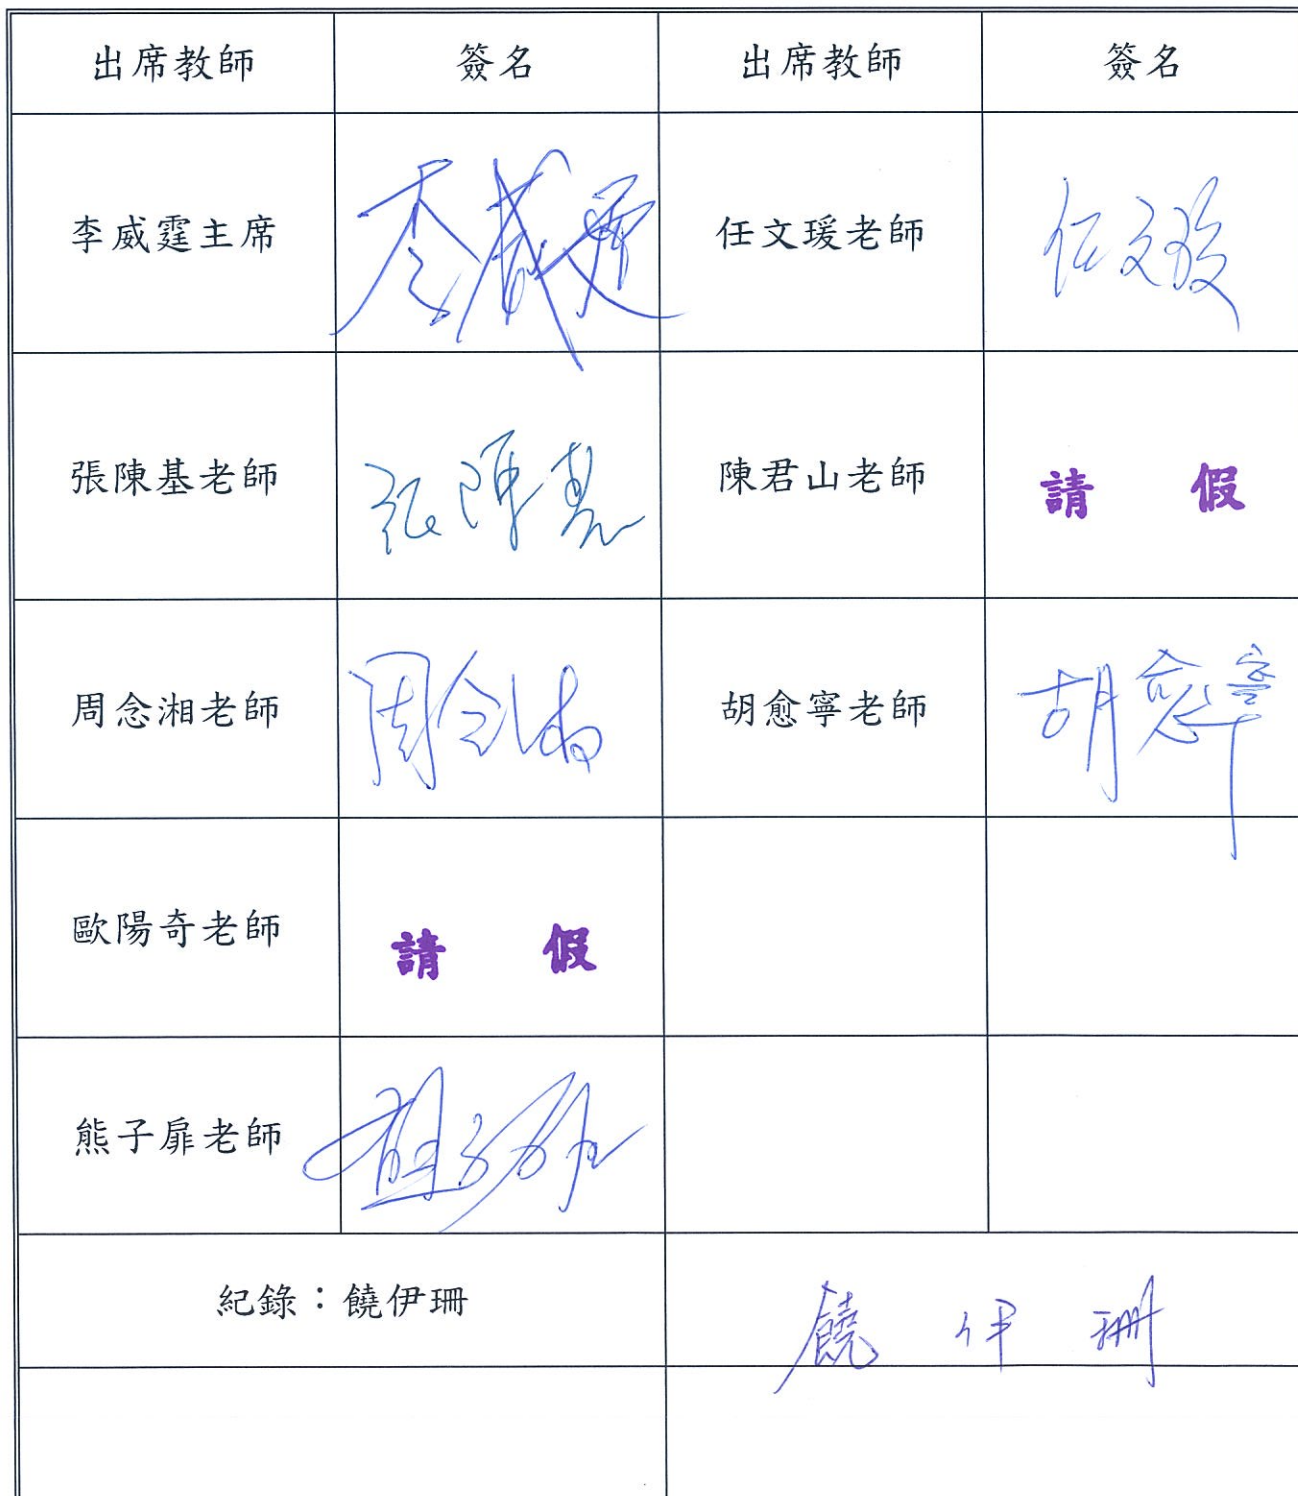 出席教師 簽名 出席教師 簽名
李威霆主席 李威霆 任文瑗老師 任文瑗
張陳基老師 張陳基 陳君山老師 請 假
周念湘老師 周念湘 胡愈寧老師 胡愈寧
歐陽奇老師 請 假
熊子扉老師 熊子扉
紀錄：饒伊珊 饒伊珊